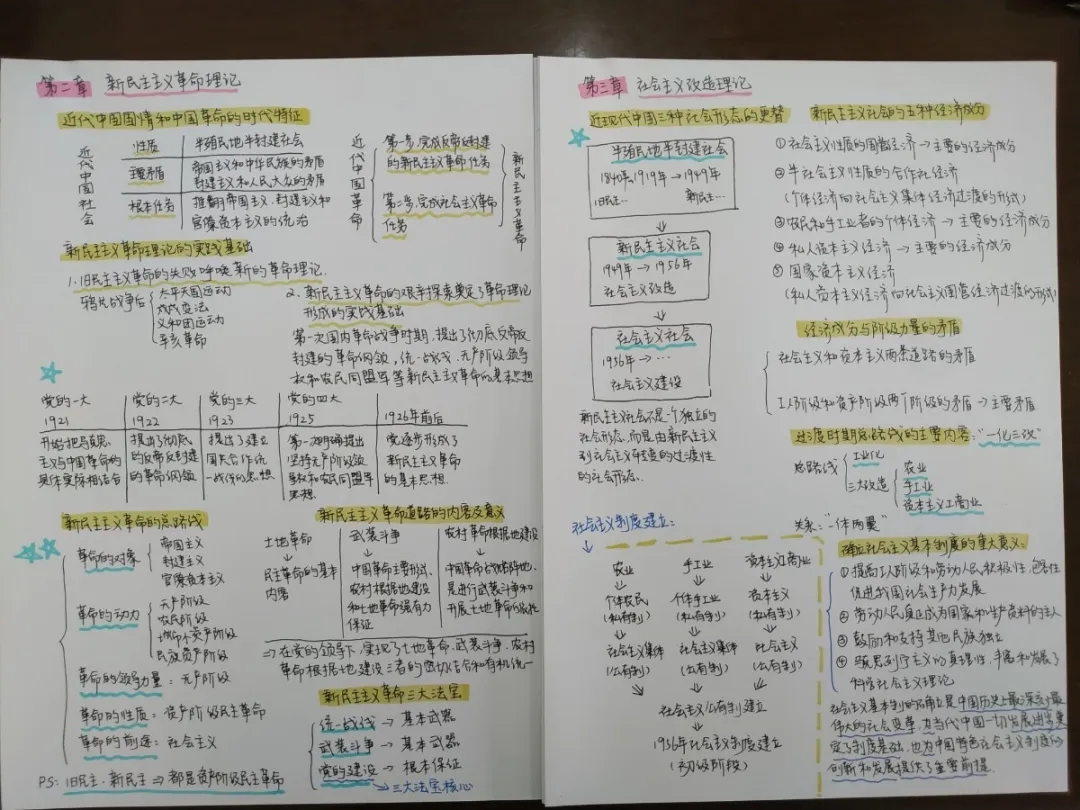 第二章 新民主主义革命理论
近代中国国情和中国革命的时代特征
近代中国社会
性质 半殖民地半封建社会
主要矛盾 帝国主义和中华民族的矛盾
封建主义和人民大众的矛盾
根本任务 推翻帝国主义.封建主义和
官僚资本主义的统治
近代中国革命
第一步,完成反帝反封建
的新民主主义革命任务
第二步,完成社会主义革命
任务
新民主主义革命
新民主主义革命理论的实践基础
1.旧民主主义革命的失败呼唤新的革命理论.
鸦片战争后
太平天国运动
戊戌变法
义和团运动
辛亥革命
2.新民主主义革命的艰辛探索奠定了革命理论
形成的实践基础
第一次国内革命战争时期,提出了彻底反帝反
封建的革命纲领,统一战线.无产阶级领导
权和农民同盟军等新民主主义革命的基本思想
党的一大
1921
开始把马克思
主义与中国革命的
具体实际相结合
党的二大
1922
提出了彻底
的反帝反封建
的革命纲领
党的三大
1923
提出了建立
国共合作统
一战线的思想
党的四大
1925
第一次明确提出
坚持无产阶级领
导权和农民同盟军
思想
1926年前后
党逐步形成了
新民主主义革命
的基本思想.
新民主主义革命的总路线
革命的对象
帝国主义
封建主义
官僚资本主义
革命的动力
无产阶级
农民阶级
城市小资产阶级
民族资产阶级
革命的领导力量:无产阶级
革命的性质:资产阶级民主革命
革命的前途:社会主义
PS:旧民主.新民主⇒都是资产阶级民主革命
新民主主义革命道路的内容及意义
土地革命
↓
民主革命的基本
内容
武装斗争
↓
中国革命主要形式、
农村根据地建设
和土地革命强有力
保证
农村革命根据地建设
↓
中国革命战略阵地.
是进行武装斗争和
开展土地革命的依托
⇒在党的领导下,实现了土地革命.武装斗争.农村
革命根据地建设三者的密切结合和有机统一
新民主主义革命三大法宝
统一战线 → 基本武器
武装斗争 → 基本武器
党的建设 → 根本保证
→三大法宝核心
第三章 社会主义改造理论
近现代中国三种社会形态的更替
半殖民地半封建社会
1840年.1919年→1949年
旧民主… 新民主…
↓
新民主主义社会
1949年→1956年
社会主义改造
↓
社会主义社会
1956年→…
社会主义建设
新民主主义社会不是一个独立的
社会形态,而是由新民主主义
到社会主义转变的过渡性
的社会形态.
新民主主义社会的五种经济成分
①社会主义性质的国营经济→主要的经济成分
②半社会主义性质的合作社经济
(个体经济向社会主义集体经济过渡的形式)
③农民和手工业者的个体经济→主要的经济成分
④私人资本主义经济→主要的经济成分
⑤国家资本主义经济
(私人资本主义经济向社会主义国营经济过渡的形式)
经济成分与阶级力量的矛盾
社会主义和资本主义两条道路的矛盾
工人阶级和资产阶级两个阶级的矛盾→主要矛盾
过渡时期总路线的主要内容:“一化三改”
总路线
工业化
三大改造
农业
手工业
资本主义工商业
关系:“一体两翼”
社会主义制度建立:
农业 手工业 资本主义工商业
↓ ↓ ↓
个体农民 个体手工业 资本主义
(私有制) (私有制) (私有制)
↓ ↓ ↓
社会主义集体 社会主义集体 社会主义
(公有制) (公有制) (公有制)
社会主义公有制建立
↓
1956年社会主义制度建立
(初级阶段)
确立社会主义基本制度的重大意义:
①提高工人阶级和劳动人民积极性,
促进我国社会生产力发展
②劳动人民真正成为国家和生产资料的主人
③鼓励和支持其他民族独立
④马克思列宁主义的真理性,丰富和发展了
科学社会主义理论
社会主义基本制度的确立是中国历史上最深刻最
伟大的社会变革,为当代中国一切发展进步奠
定了制度基础,也为中国特色社会主义制度的
创新和发展提供了重要前提.